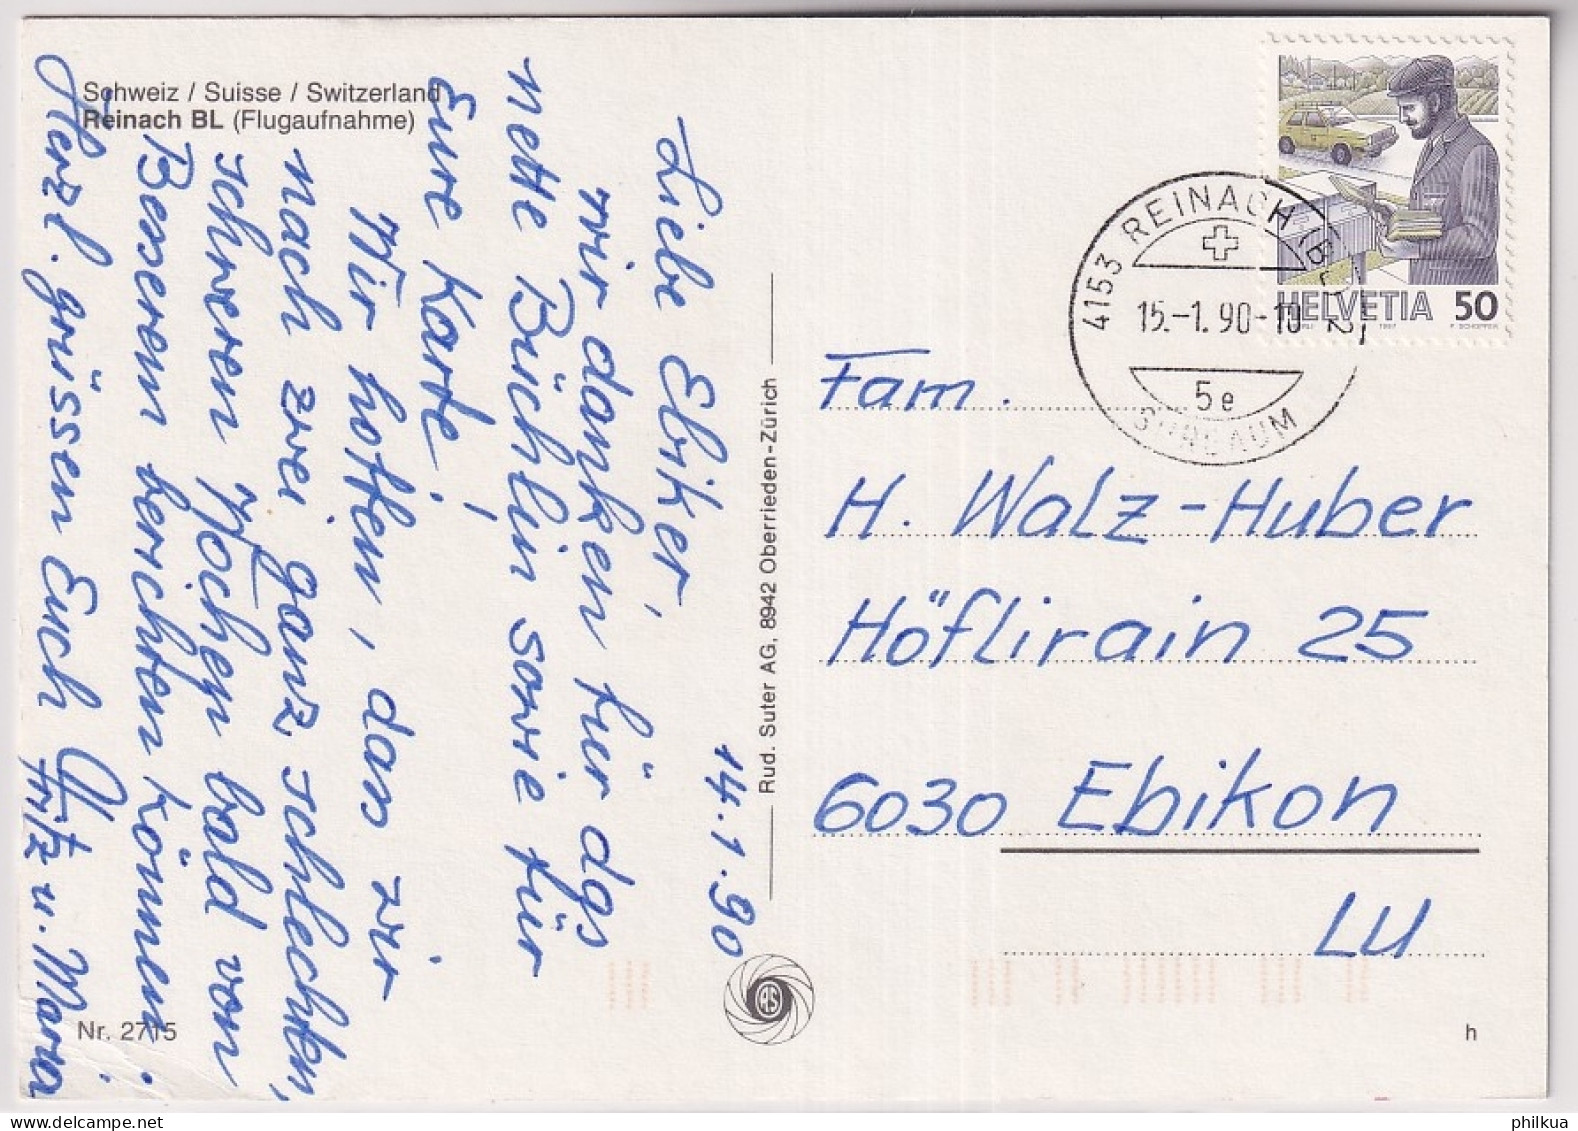 Schweiz / Suisse / Switzerland
Reinach BL (Flugaufnahme)
14.1.90
Liebe Ebiker,
wir danken für das
nette Büchlin sowie für
Eure Karte!
Wir hoffen, dass wir
nach zwei ganz schlechten,
schweren Wochen bald von
Besserem berichten können.
Herzl. grüssen Euch
Fritz u. Maria
Nr. 2715
Rud. Suter AG, 8942 Oberrieden-Zürich
RS
HELVETIA 50
1987 P. SCHOPFER
4153 REINACH (BL) 2
15.-1.90-10
5e
Fam.
H. Walz-Huber
Höflirain 25
6030 Ebikon
LU
h
philkua